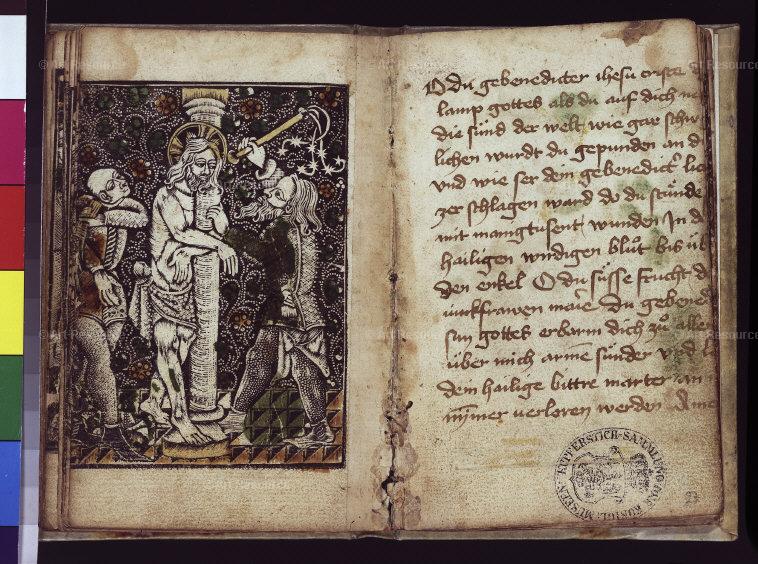 O du gebenedicter ihesu criste d
lamp gottes als du auf dich ne
die sünd der welt wie gar schw
lichen wurdt du gepunden an d
vnd wie ser dein gebenedict lie
zer schlagen ward do du stünde
mit manigtusent wunden In d
hailigen wirdigen blůt bis üb
den enkel O du süsse frucht d
iunkfrawen marie Du gebened
sun gottes erbarm dich zů aller
über mich arme sünder vnd l
dein hailige bittre marter an
nimer verloren werden Ame
KUPFERSTICH-SAMMLUNG DER KÖNIGL. MUSEEN
23
Art Resource